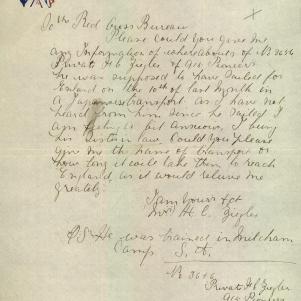 To the Red Cross Bureau
Please Could You give me
any Information of whereabouts of No 3656
Private H C Ziegler of 4ec Pioneers
he was supposed to have Sailed for
England on the 10th of last Month in
a Japanese transport. as I have not
heard from him since he Sailed I
am feeling a bit Anxious, I being
his sister in law. Could You please
give me the name of transport or
how long it will take them to reach
England. as it would relieve me
greatly.
I am Yours &ct
Mrs H. C. Ziegler
P.S. He was trained in Mitcham
Camp S. A.
No 3656
Private H C Ziegler
Pioneers